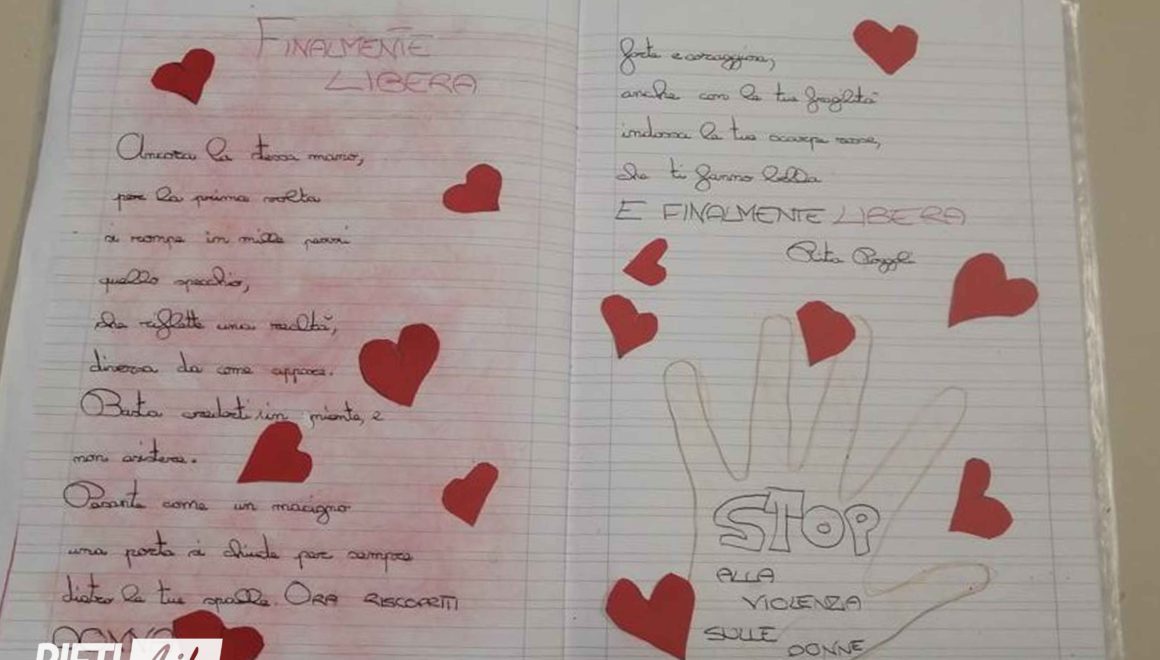 FINALMENTE
LIBERA
Ancora la stessa mano,
per la prima volta
si rompe in mille pezzi
quello specchio,
che riflette una realtà,
diversa da come appare.
Basta crederti un niente, e
non esistere.
Pesante come un macigno
una porta si chiude per sempre
dietro le tue spalle. ORA RISCOPRITI
DONNA
forte e coraggiosa,
anche con la tua fragilità
indossa le tue scarpe rosse,
che ti fanno bella
E FINALMENTE LIBERA
Rita
STOP
ALLA
VIOLENZA
SULLE
DONNE
RIETI Life